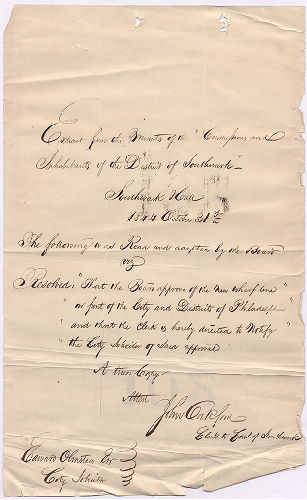 Extract from the Minutes of the "Commissioners and
Inhabitants of the District of Southwark"
Southwark Hall
1844 October 31st
The following was Read and adopted by the Board
viz
Resolved, "That the Board approve of the new wharf line
" in port of the City and Districts of Philadelphia
" and that the Clerk is hereby directed to Notify
" the City Solicitor of said approval
A true Copy
Attest
John Oakford
Clerk to Com'rs of Southwark
Edward Olmsted Esqr
City Solicitor